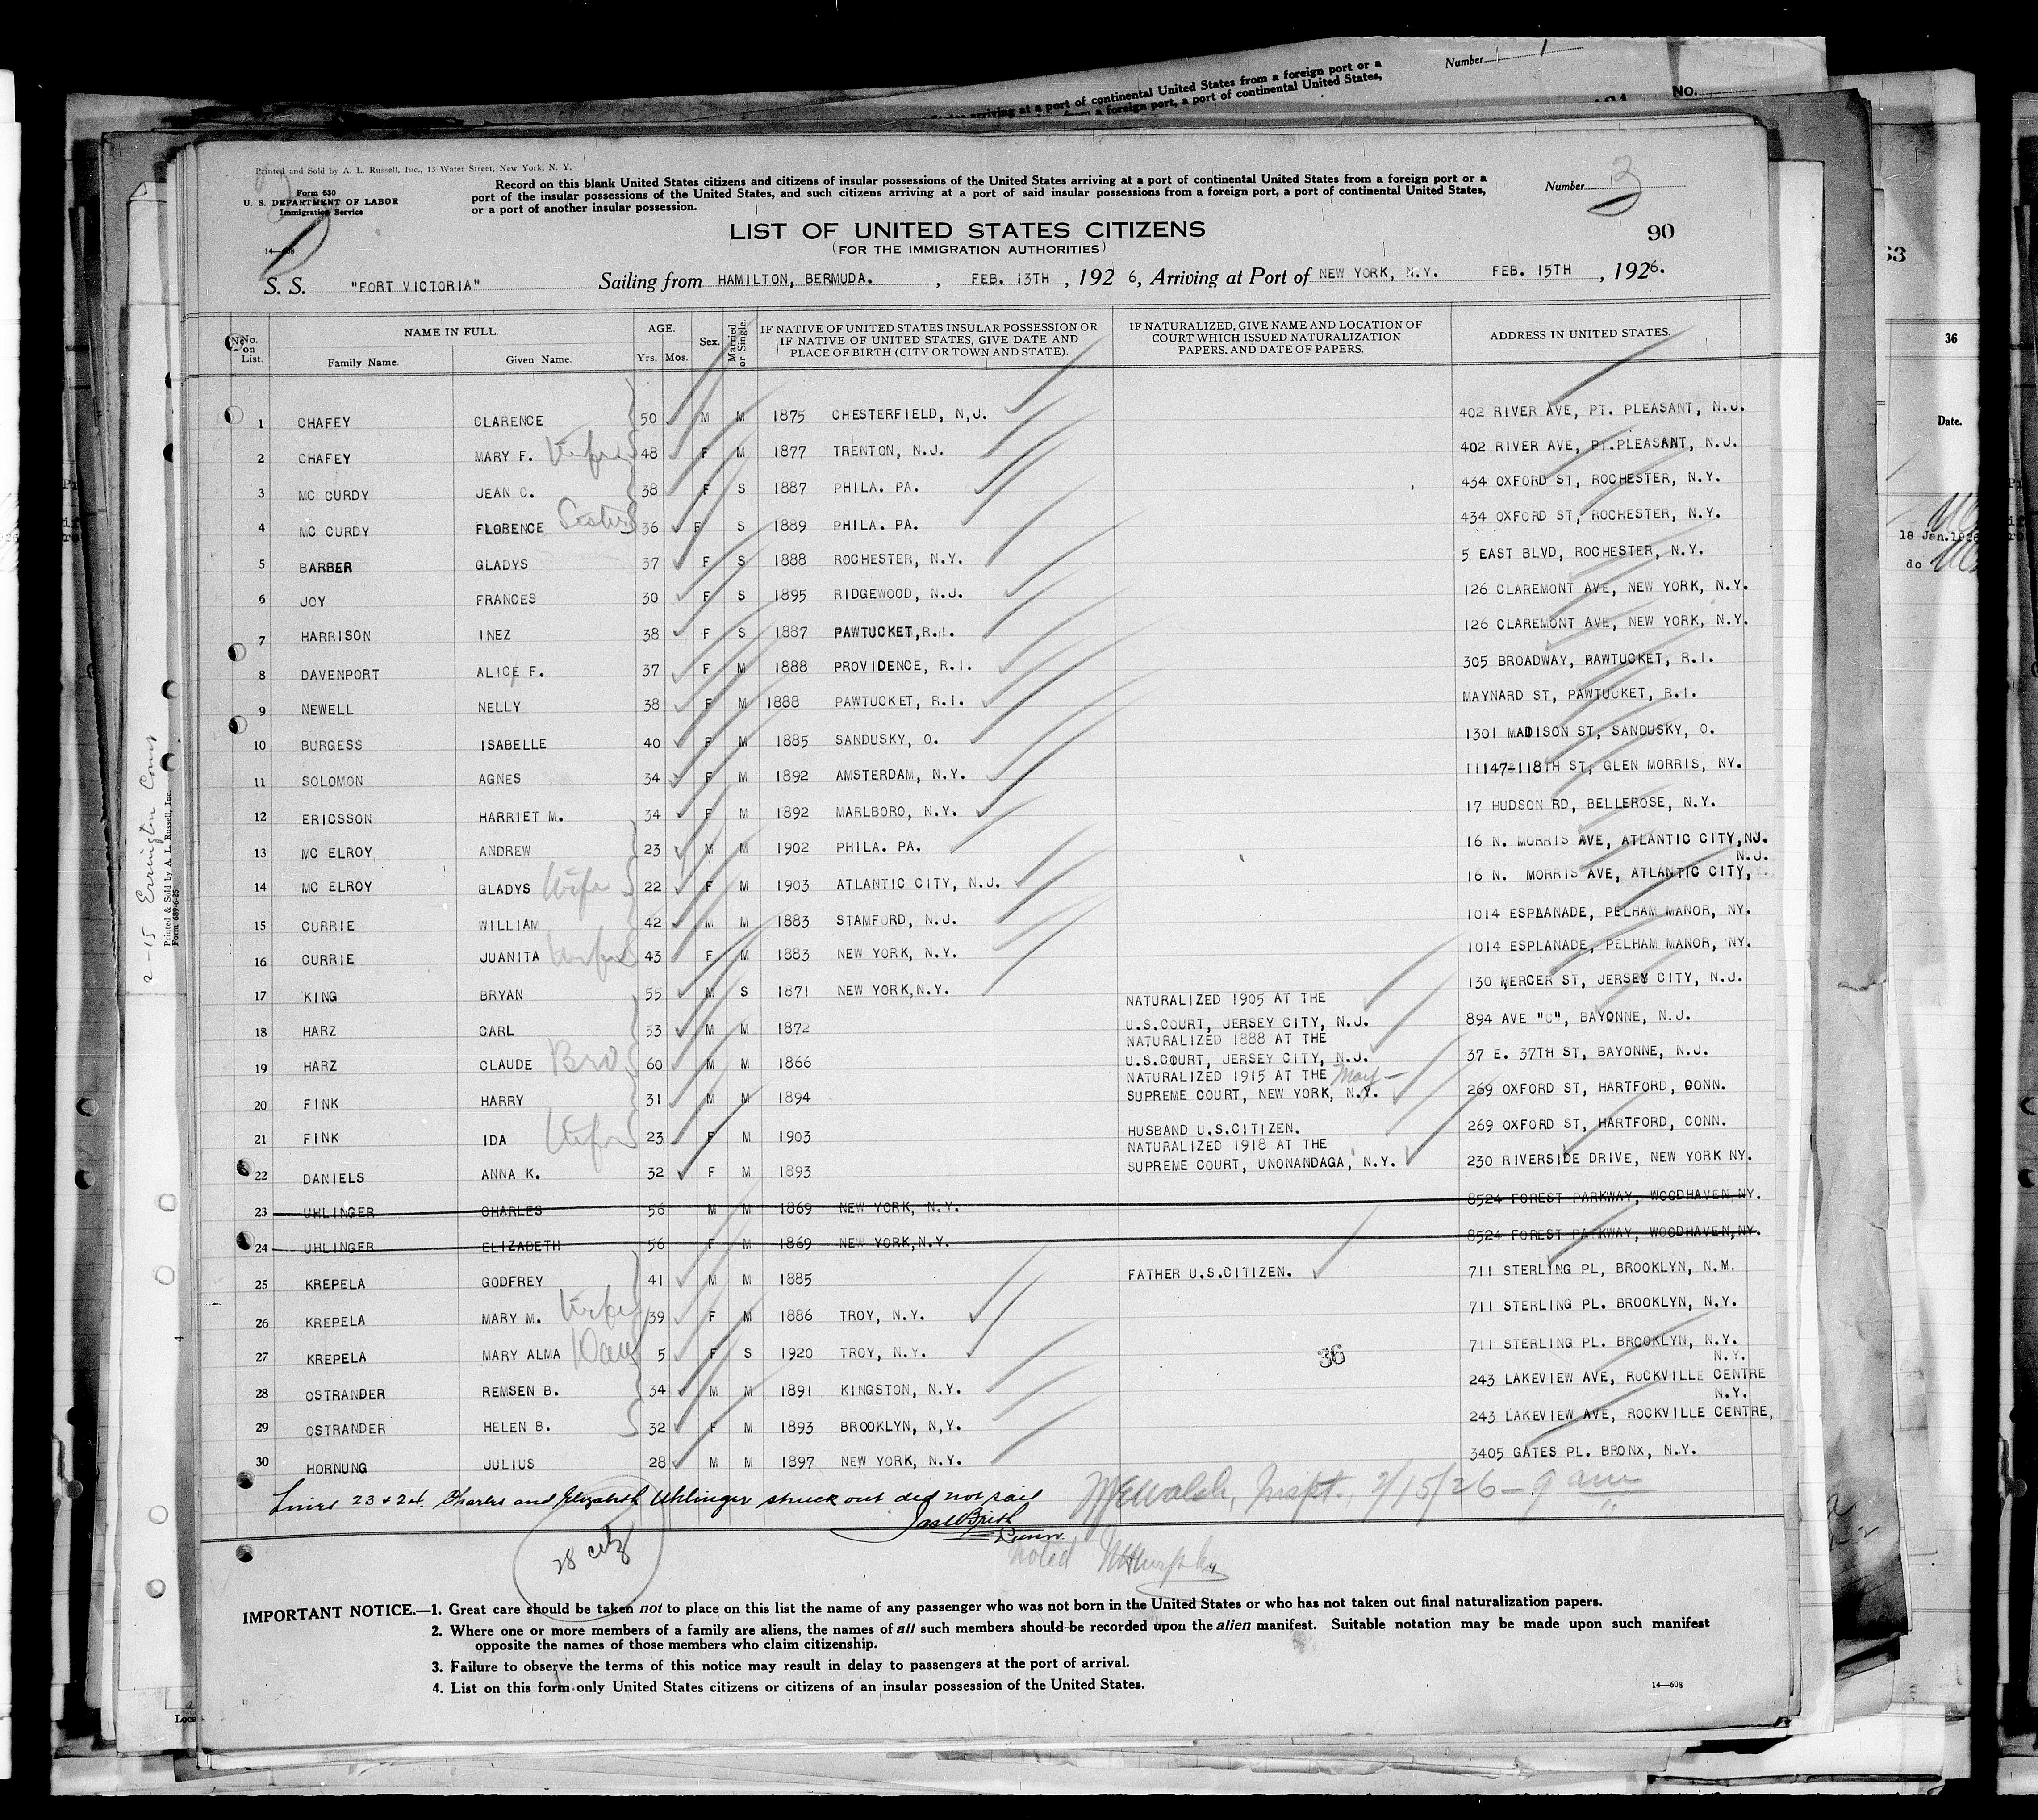 Number 1
States arriving at a port of continental United States from a foreign port or a
from a foreign port, a port of continental United States,
No.
Printed and Sold by A. L. Russell, Inc., 13 Water Street, New York, N. Y.
Form 630
U. S. DEPARTMENT OF LABOR
Immigration Service
14—608
Record on this blank United States citizens and citizens of insular possessions of the United States arriving at a port of continental United States from a foreign port or a
port of the insular possessions of the United States, and such citizens arriving at a port of said insular possessions from a foreign port, a port of continental United States,
or a port of another insular possession.
Number 3
LIST OF UNITED STATES CITIZENS
(FOR THE IMMIGRATION AUTHORITIES)
90
S. S. "FORT VICTORIA" Sailing from HAMILTON, BERMUDA. , FEB. 13TH , 192 6, Arriving at Port of NEW YORK, N.Y. FEB. 15TH , 1926.
No. on List. NAME IN FULL. Family Name. Given Name. AGE. Yrs. Mos. Sex. Married or Single. IF NATIVE OF UNITED STATES INSULAR POSSESSION OR IF NATIVE OF UNITED STATES, GIVE DATE AND PLACE OF BIRTH (CITY OR TOWN AND STATE). IF NATURALIZED, GIVE NAME AND LOCATION OF COURT WHICH ISSUED NATURALIZATION PAPERS, AND DATE OF PAPERS. ADDRESS IN UNITED STATES.
1 CHAFEY CLARENCE 50 M M 1875 CHESTERFIELD, N,J. 402 RIVER AVE, PT. PLEASANT, N.J.
2 CHAFEY MARY F. Wife 48 F M 1877 TRENTON, N.J. 402 RIVER AVE, PT.PLEASANT, N.J.
3 MC CURDY JEAN C. 38 F S 1887 PHILA. PA. 434 OXFORD ST, ROCHESTER, N.Y.
4 MC CURDY FLORENCE Sister 36 F S 1889 PHILA. PA. 434 OXFORD ST, ROCHESTER, N.Y.
5 BARBER GLADYS 37 F S 1888 ROCHESTER, N.Y. 5 EAST BLVD, ROCHESTER, N.Y.
6 JOY FRANCES 30 F S 1895 RIDGEWOOD, N.J. 126 CLAREMONT AVE, NEW YORK, N.Y.
7 HARRISON INEZ 38 F S 1887 PAWTUCKET,R.I. 126 CLAREMONT AVE, NEW YORK, N.Y.
8 DAVENPORT ALICE F. 37 F M 1888 PROVIDENCE, R.I. 305 BROADWAY, PAWTUCKET, R.I.
9 NEWELL NELLY 38 F M 1888 PAWTUCKET, R.I. MAYNARD ST, PAWTUCKET, R.I.
10 BURGESS ISABELLE 40 F M 1885 SANDUSKY, O. 1301 MADISON ST, SANDUSKY, O.
11 SOLOMON AGNES 34 F M 1892 AMSTERDAM, N.Y. 11147-118TH ST, GLEN MORRIS, NY.
12 ERICSSON HARRIET M. 34 F M 1892 MARLBORO, N.Y. 17 HUDSON RD, BELLEROSE, N.Y.
13 MC ELROY ANDREW 23 M M 1902 PHILA. PA. 16 N. MORRIS AVE, ATLANTIC CITY,NJ.
14 MC ELROY GLADYS Wife 22 F M 1903 ATLANTIC CITY, N.J. 16 N. MORRIS AVE, ATLANTIC CITY, N.J.
15 CURRIE WILLIAM 42 M M 1883 STAMFORD, N.J. 1014 ESPLANADE, PELHAM MANOR, NY.
16 CURRIE JUANITA Wife 43 F M 1883 NEW YORK, N.Y. 1014 ESPLANADE, PELHAM MANOR, NY.
17 KING BRYAN 55 M S 1871 NEW YORK,N.Y. 130 MERCER ST, JERSEY CITY, N.J.
18 HARZ CARL 53 M M 1872 NATURALIZED 1905 AT THE U.S.COURT, JERSEY CITY, N.J. 894 AVE "C", BAYONNE, N.J.
19 HARZ CLAUDE Bro 60 M M 1866 NATURALIZED 1888 AT THE U.S.COURT, JERSEY CITY, N.J. 37 E. 37TH ST, BAYONNE, N.J.
20 FINK HARRY 31 M M 1894 NATURALIZED 1915 AT THE May- SUPREME COURT, NEW YORK, N.Y. 269 OXFORD ST, HARTFORD, CONN.
21 FINK IDA Wife 23 F M 1903 HUSBAND U.S.CITIZEN. 269 OXFORD ST, HARTFORD, CONN.
22 DANIELS ANNA K. 32 F M 1893 NATURALIZED 1918 AT THE SUPREME COURT, UNONANDAGA, N.Y. 230 RIVERSIDE DRIVE, NEW YORK NY.
23 UHLINGER CHARLES 56 M M 1869 NEW YORK, N.Y. 8524 FOREST PARKWAY, WOODHAVEN,NY.
24 UHLINGER ELIZABETH 56 F M 1869 NEW YORK,N.Y. 8524 FOREST PARKWAY, WOODHAVEN,NY.
25 KREPELA GODFREY 41 M M 1885 FATHER U.S.CITIZEN. 711 STERLING PL, BROOKLYN, N.M.
26 KREPELA MARY M. Wife 39 F M 1886 TROY, N.Y. 711 STERLING PL. BROOKLYN, N.Y.
27 KREPELA MARY ALMA Dau 5 F S 1920 TROY, N.Y. 36 711 STERLING PL. BROOKLYN, N.Y.
28 OSTRANDER REMSEN B. 34 M M 1891 KINGSTON, N.Y. 243 LAKEVIEW AVE, ROCKVILLE CENTRE N.Y.
29 OSTRANDER HELEN B. 32 F M 1893 BROOKLYN, N,Y. 243 LAKEVIEW AVE, ROCKVILLE CENTRE, N.Y.
30 HORNUNG JULIUS 28 M M 1897 NEW YORK, N.Y. 3405 GATES PL. BRONX, N.Y.
Lines 23 & 24. Charles and Elizabeth Uhlinger struck out did not sail
Walsh, Inspt., 2/15/26 - 9 am
28 citz
noted
IMPORTANT NOTICE.—1. Great care should be taken not to place on this list the name of any passenger who was not born in the United States or who has not taken out final naturalization papers.
2. Where one or more members of a family are aliens, the names of all such members should be recorded upon the alien manifest. Suitable notation may be made upon such manifest
opposite the names of those members who claim citizenship.
3. Failure to observe the terms of this notice may result in delay to passengers at the port of arrival.
4. List on this form only United States citizens or citizens of an insular possession of the United States.
14—608
2-15
Printed & Sold by A. L. Russell, Inc.
Form 689-6-25
36
Date.
18 Jan.1926
do